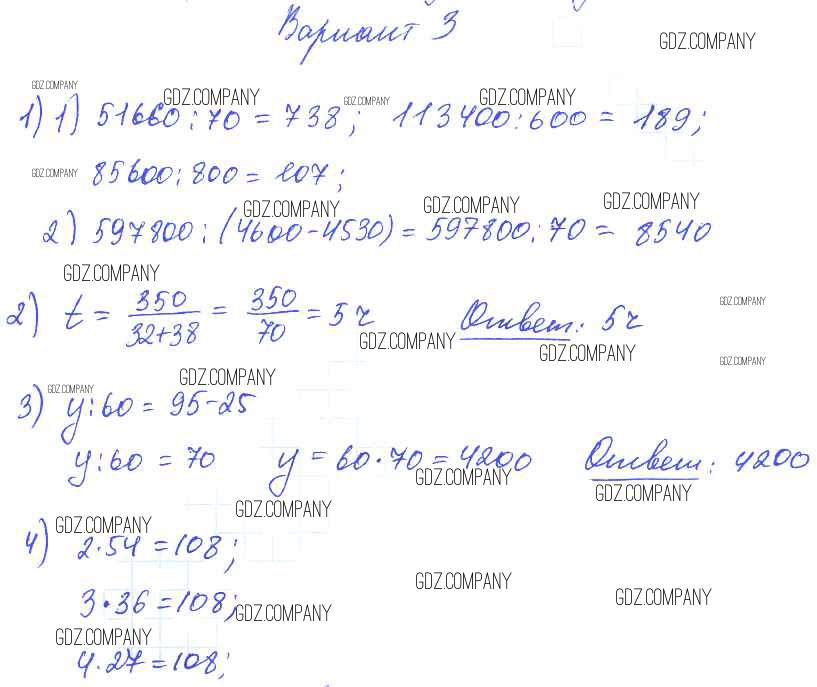 Вариант 3
GDZ.COMPANY
GDZ.COMPANY GDZ.COMPANY GDZ.COMPANY GDZ.COMPANY
1) 1) 51660 : 70 = 738; 113400 : 600 = 189;
GDZ.COMPANY 85600 : 800 = 107;
GDZ.COMPANY GDZ.COMPANY GDZ.COMPANY
2) 597800 : (4600-4530) = 597800 : 70 = 8540
GDZ.COMPANY
2) t = 350/(32+38) = 350/70 = 5 ч Ответ: 5 ч
GDZ.COMPANY
GDZ.COMPANY GDZ.COMPANY GDZ.COMPANY
GDZ.COMPANY GDZ.COMPANY
3) y : 60 = 95-25
y : 60 = 70 y = 60 · 70 = 4200 Ответ: 4200
GDZ.COMPANY GDZ.COMPANY
GDZ.COMPANY GDZ.COMPANY
4) 2 · 54 = 108;
GDZ.COMPANY GDZ.COMPANY
3 · 36 = 108;
GDZ.COMPANY
GDZ.COMPANY
4 · 27 = 108;